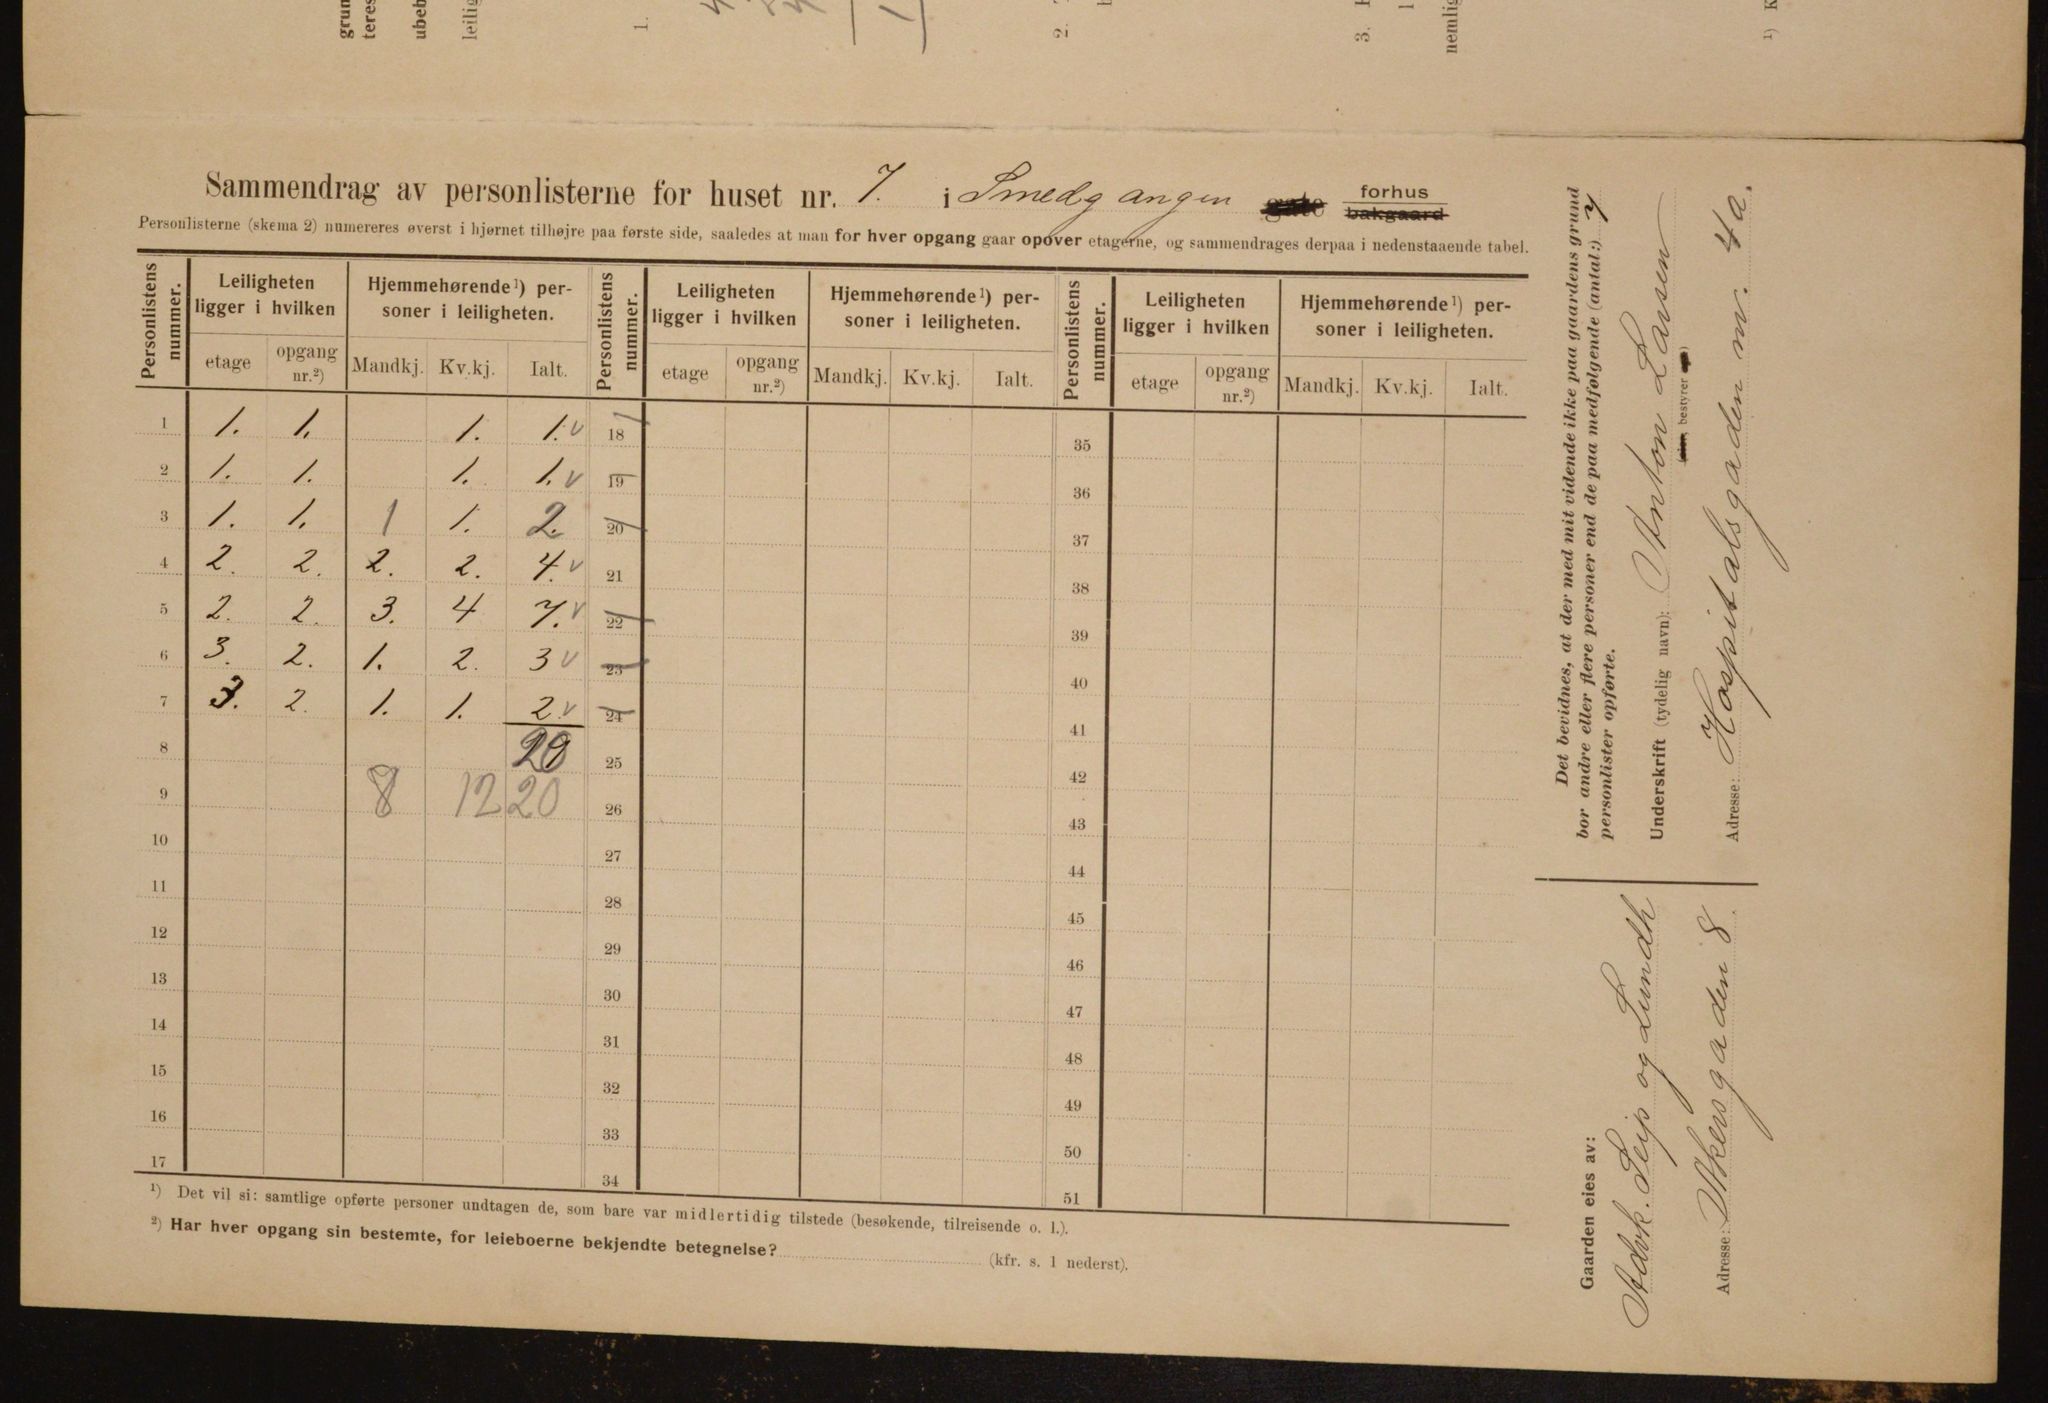 grun
teres
ubeb
leilig
1.
2.
3.
nemlig
¹) K
Sammendrag av personlisterne for huset nr. 7. i Smedgangen gate forhus bakgaard
Personlisterne (skema 2) numereres øverst i hjørnet tilhøjre paa første side, saaledes at man for hver opgang gaar opover etagerne, og sammendrages derpaa i nedenstaaende tabel.
Personlistens nummer. Leiligheten ligger i hvilken Hjemmehørende¹) personer i leiligheten. Personlistens nummer. Leiligheten ligger i hvilken Hjemmehørende¹) personer i leiligheten. Personlistens nummer. Leiligheten ligger i hvilken Hjemmehørende¹) personer i leiligheten.
etage opgang nr.²) Mandkj. Kv.kj. Ialt. etage opgang nr.²) Mandkj. Kv.kj. Ialt. etage opgang nr.²) Mandkj. Kv.kj. Ialt.
1 1. 1. 1. 1. v 18 35
2 1. 1. 1. 1. v 19 36
3 1. 1. 1 1. 2. 20 37
4 2. 2. 2. 2. 4. v 21 38
5 2. 2. 3. 4 7. v 22 39
6 3. 2. 1. 2. 3 v 23 40
7 3. 2. 1. 1. 2. v 24 41
8 20 25 42
9 8 12 20 26 43
10 27 44
11 28 45
12 29 46
13 30 47
14 31 48
15 32 49
16 33 50
17 34 51
¹) Det vil si: samtlige opførte personer undtagen de, som bare var midlertidig tilstede (besøkende, tilreisende o. l.).
²) Har hver opgang sin bestemte, for leieboerne bekjendte betegnelse? (kfr. s. 1 nederst).
Det bevidnes, at der med mit vidende ikke paa gaardens grund
bor andre eller flere personer end de paa medfølgende (antal:) 7
personlister opførte.
Underskrift (tydelig navn): Anton Larsen
bestyrer
Adresse: Hospitalsgaden nr. 4a.
Gaarden eies av:
Advk. Seip og Lundh
Adresse: Akersgaden 8